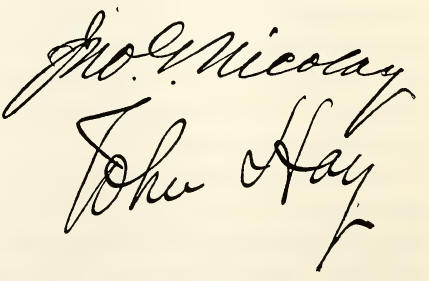 Jno. G. Nicolay
John Hay